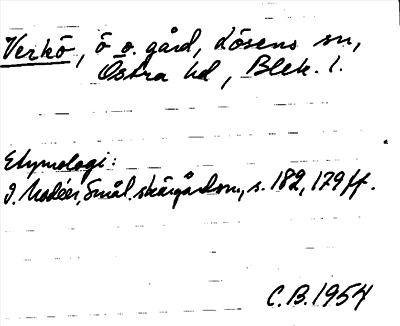 Verkö, ö o. gård, Lösens sn,
Östra hd, Blek. l.
Etymologi:
I. Modéer, Smål. skärgårdsn, s. 182, 179 ff.
C.B. 1954